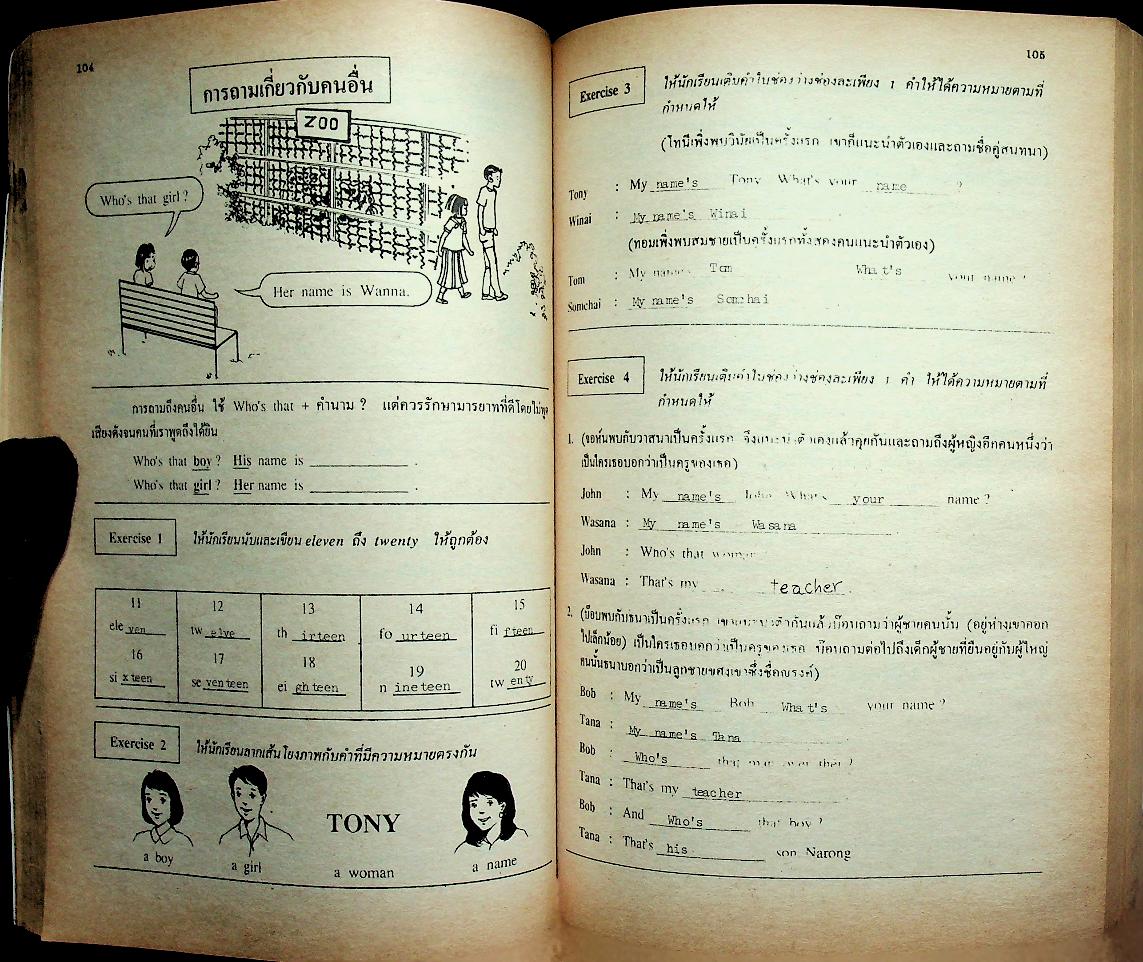 104
การถามเกี่ยวกับคนอื่น
ZOO
Who's that girl ?
Her name is Wanna.
การถามถึงคนอื่น ใช้ Who's that + คำนาม ? แต่ควรรักษามารยาทที่ดีโดยไม่พูด
เสียงดังจนคนที่เราพูดถึงได้ยิน
Who's that boy ? His name is ____________ .
Who's that girl ? Her name is ____________ .
Exercise 1 ให้นักเรียนนับและเขียน eleven ถึง twenty ให้ถูกต้อง
11 12 13 14 15
eleven twelve thirteen fourteen fifteen
16 17 18 19 20
sixteen seventeen eighteen nineteen twenty
Exercise 2 ให้นักเรียนลากเส้นโยงภาพกับคำที่มีความหมายตรงกัน
TONY
a boy a girl a woman a name
105
Exercise 3 ให้นักเรียนเติมคำในช่องว่างช่องละเพียง 1 คำให้ได้ความหมายตามที่
กำหนดให้
(โทนี่เพิ่งพบวินัยเป็นครั้งแรก เขาก็แนะนำตัวเองและถามชื่อคู่สนทนา)
Tony : My name's Tony What's your name ?
Winai : My name's Winai
(ทอมเพิ่งพบสมชายเป็นครั้งแรกทั้งสองคนแนะนำตัวเอง)
Tom : My name's Tom What's your name ?
Somchai : My name's Somchai
Exercise 4 ให้นักเรียนเติมคำในช่องว่างช่องละเพียง 1 คำ ให้ได้ความหมายตามที่
กำหนดให้
1. (จอห์นพบกับวาสนาเป็นครั้งแรก จึงแนะนำตัวเองแล้วคุยกันและถามถึงผู้หญิงอีกคนหนึ่งว่า
เป็นใครเธอบอกว่าเป็นครูของเธอ)
John : My name's John What's your name ?
Wasana : My name's Wasana
John : Who's that woman
Wasana : That's my teacher.
2. (บ๊อบพบกับธนาเป็นครั้งแรก กันแล้วบ๊อบถามว่าผู้ชายคนนั้น (อยู่ห่างเขาออก
ไปเล็กน้อย) เป็นใครเธอบอกว่าเป็นครูของเธอ บ๊อบถามต่อไปถึงเด็กผู้ชายที่ยืนอยู่กับผู้ใหญ่
คนนั้นธนาบอกว่าเป็นลูกชายของเขาซึ่งชื่อณรงค์)
Bob : My name's Bob What's your name ?
Tana : My name's Tana
Bob : Who's that man over ?
Tana : That's my teacher
Bob : And Who's that boy ?
Tana : That's his son Narong